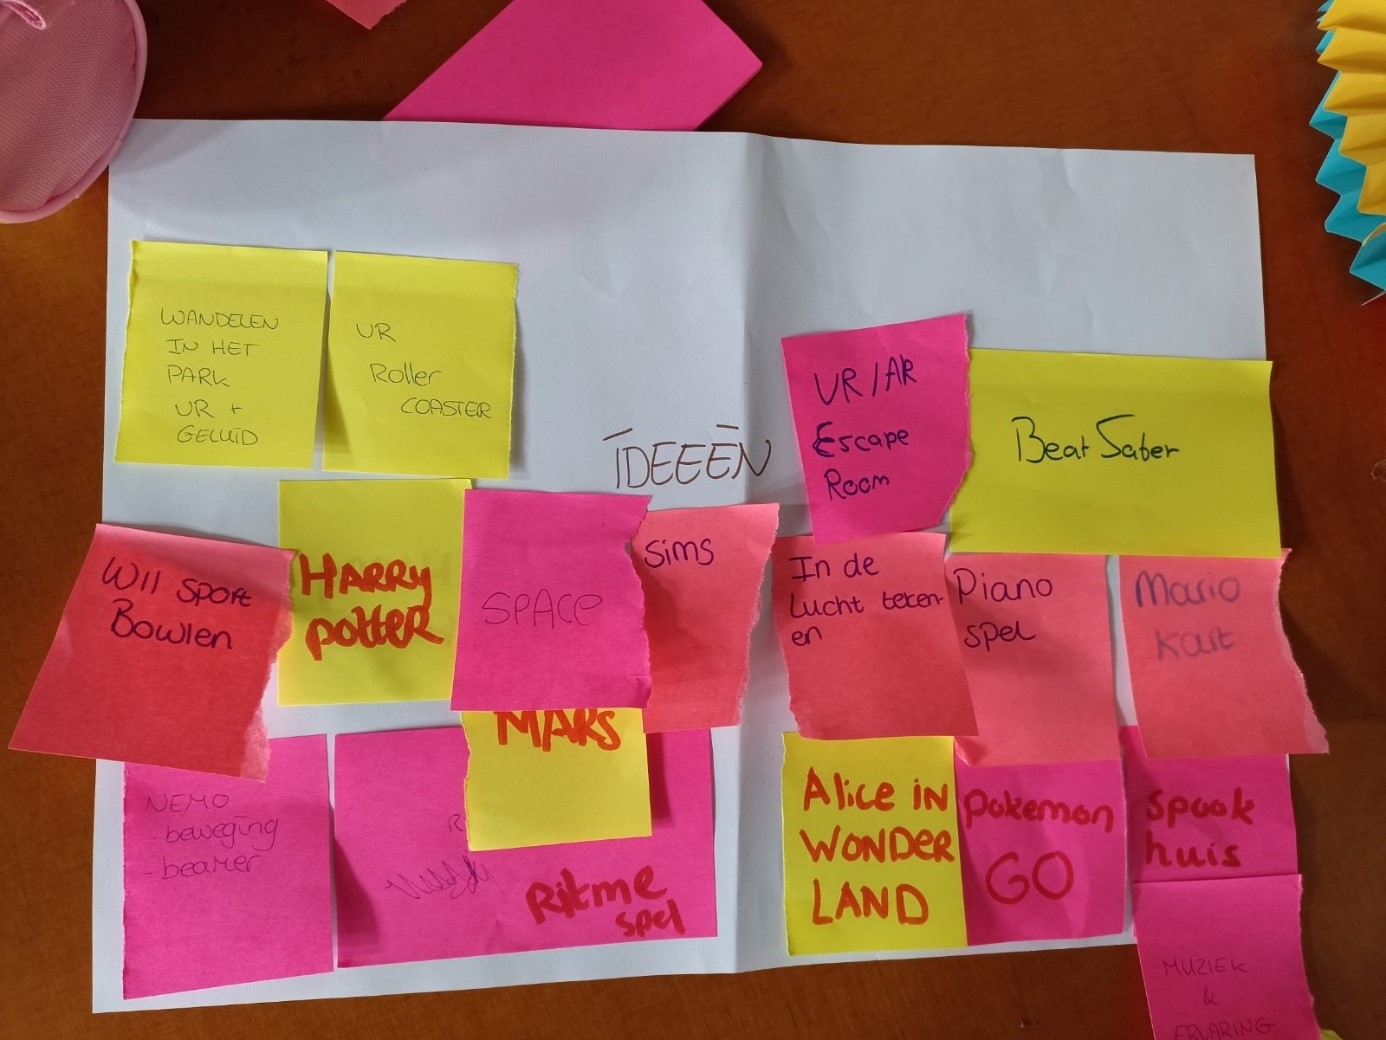 WANDELEN
IN HET
PARK
VR +
GELUID
VR
Roller
COASTER
IDEEËN
VR/AR
Escape
Room
Beat Saber
WII Sport
Bowlen
HARRY
potter
SPACE
Sims
In de
Lucht teken-
en
Piano
spel
Mario
Kart
MARS
NEMO
- beweging
- beamer
Ritme
spel
Alice in
WONDER
LAND
pokemon
GO
Spook
huis
MUZIEK
&
ERVARING